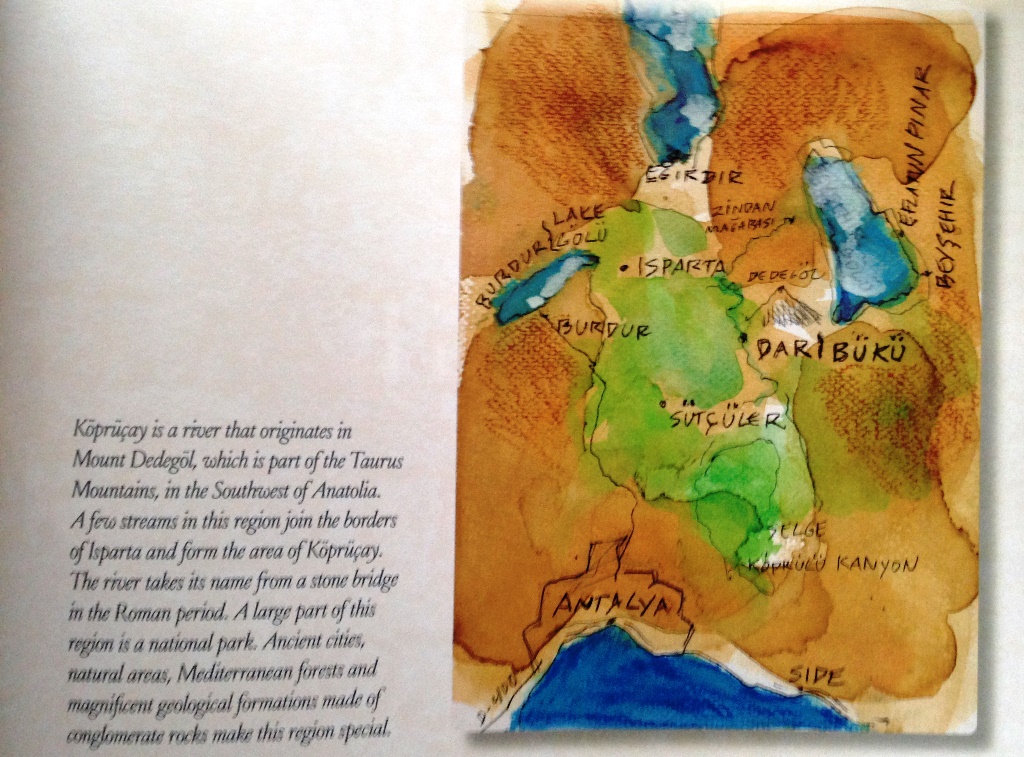 Köprüçay is a river that originates in
Mount Dedegöl, which is part of the Taurus
Mountains, in the Southwest of Anatolia.
A few streams in this region join the borders
of Isparta and form the area of Köprüçay.
The river takes its name from a stone bridge
in the Roman period. A large part of this
region is a national park. Ancient cities,
natural areas, Mediterranean forests and
magnificent geological formations made of
conglomerate rocks make this region special.
EĞİRDİR
EFLATUN PINAR
BEYŞEHIR
ZİNDAN
MAĞARASI
LAKE
BURDUR GÖLÜ
ISPARTA
DEDEGÖL
BURDUR
DARIBÜKÜ
SÜTÇÜLER
SELGE
KÖPRÜLÜ KANYON
ANTALYA
SIDE